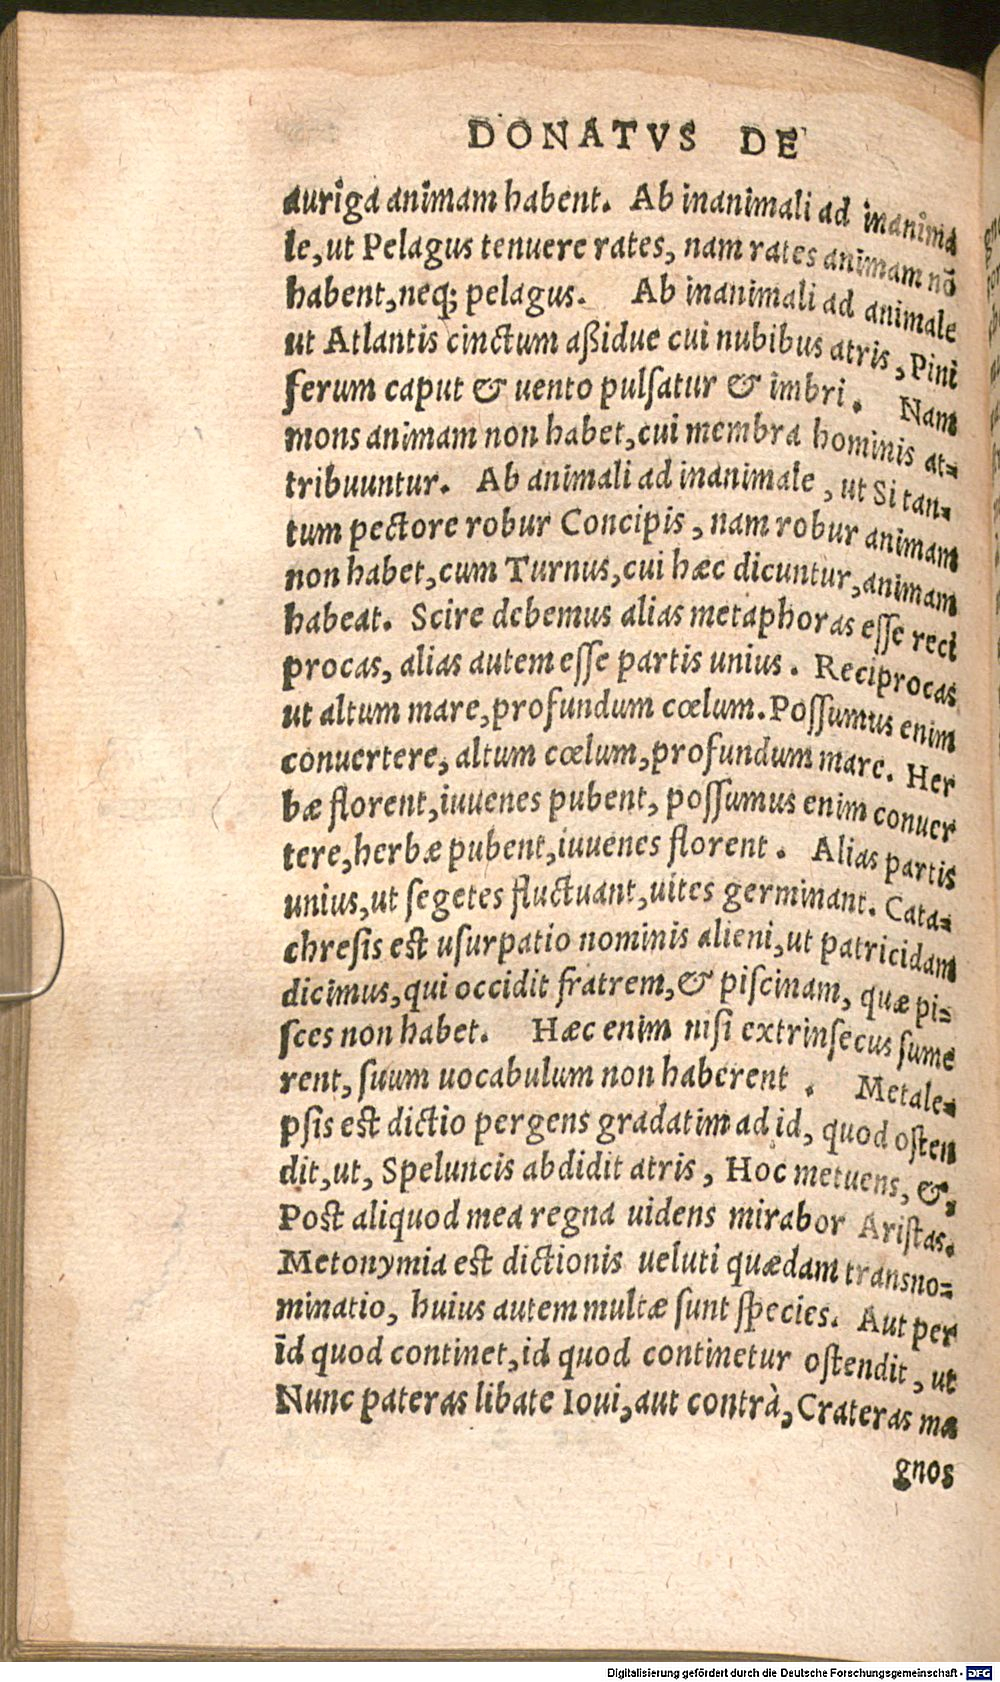 DONATVS DE
auriga animam habent. Ab inanimali ad inanima
le, ut Pelagus tenuere rates, nam rates animam nō
habent, neq; pelagus. Ab inanimali ad animale
ut Atlantis cinctum aßidue cui nubibus atris, Pini
ferum caput & uento pulsatur & imbri. Nam
mons animam non habet, cui membra hominis at=
tribuuntur. Ab animali ad inanimale, ut Si tan=
tum pectore robur Concipis, nam robur animam
non habet, cum Turnus, cui hæc dicuntur, animam
habeat. Scire debemus alias metaphoras esse reci
procas, alias autem esse partis unius. Reciprocas
ut altum mare, profundum cœlum. Possumus enim
conuertere, altum cœlum, profundum mare. Her
bæ florent, iuuenes pubent, possumus enim conuer
tere, herbæ pubent, iuuenes florent. Alias partis
unius, ut segetes fluctuant, uites germinant. Cata=
chresis est usurpatio nominis alieni, ut patricidam
dicimus, qui occidit fratrem, & piscinam, quæ pi=
sces non habet. Hæc enim nisi extrinsecus sume
rent, suum uocabulum non haberent. Metale=
psis est dictio pergens gradatim ad id, quod osten
dit, ut, Speluncis abdidit atris, Hoc metuens, &,
Post aliquod mea regna uidens mirabor Aristas.
Metonymia est dictionis ueluti quædam transno=
minatio, huius autem multæ sunt species. Aut per
id quod continet, id quod continetur ostendit, ut
Nunc pateras libate Ioui, aut contrà, Crateras ma
gnos
Digitalisierung gefördert durch die Deutsche Forschungsgemeinschaft - DFG